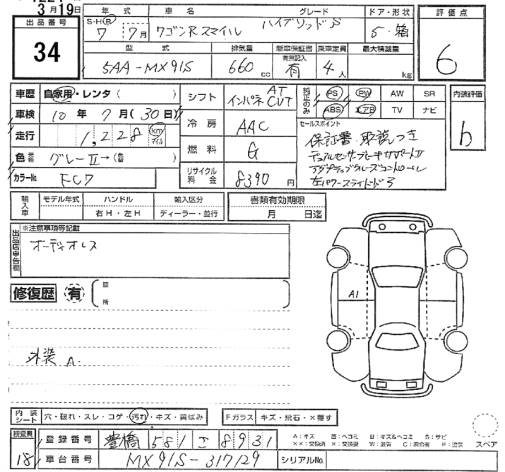 3月19日
出品番号
34
年式
車名
グレード
ドア・形状
評価点
S・H(R)
7 7月
ワゴンRスマイル
ハイブリッドS
5・箱
6
型式
排気量
新車保証書
乗車定員
最大積載量
有無記入
5AA-MX91S
660 cc
有
4 人
kg
車歴 自家用・レンタ( )
シフト
AT
インパネ CVT
PS PW AW SR
ABS TV ナビ
内装評価
b
車検 10年 7月(30日)
冷房 AAC
セールスポイント
走行 1,228 km マイル
保証書、取説つき
燃料 G
デュアルセンサーブレーキサポートII
色 グレーII→( )
アダプティブクルーズコントロール
リサイクル料金 8390円
左パワースライドドア
カラーNo FC7
輸入車
モデル年式
ハンドル
輸入区分
書類有効期限
右H・左H
ディーラー・並行
月 日迄
※注意事項等記載
オーディオレス
修復歴 有
箇所
A1
外装 A
内装シート
穴・破れ・スレ・コゲ・汚れ・キズ・黄ばみ
Fガラス
キズ・飛石・×要す
検査員
18
登録番号
豊橋 581 さ 8931
車台番号
MX91S-317129
シリアルNo.
スペア